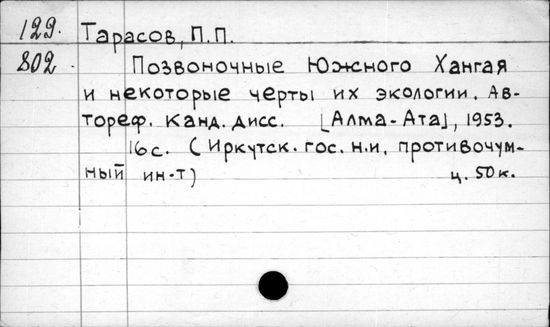 129. Тарасов, П.П.
802. Позвоночные Южного Хангая
и некоторые черты их экологии. Ав-
тореф. канд. дисс. [Алма-Ата], 1953.
16с. (Иркутск. гос. н.и. противочум-
ный ин-т) ц. 50к.